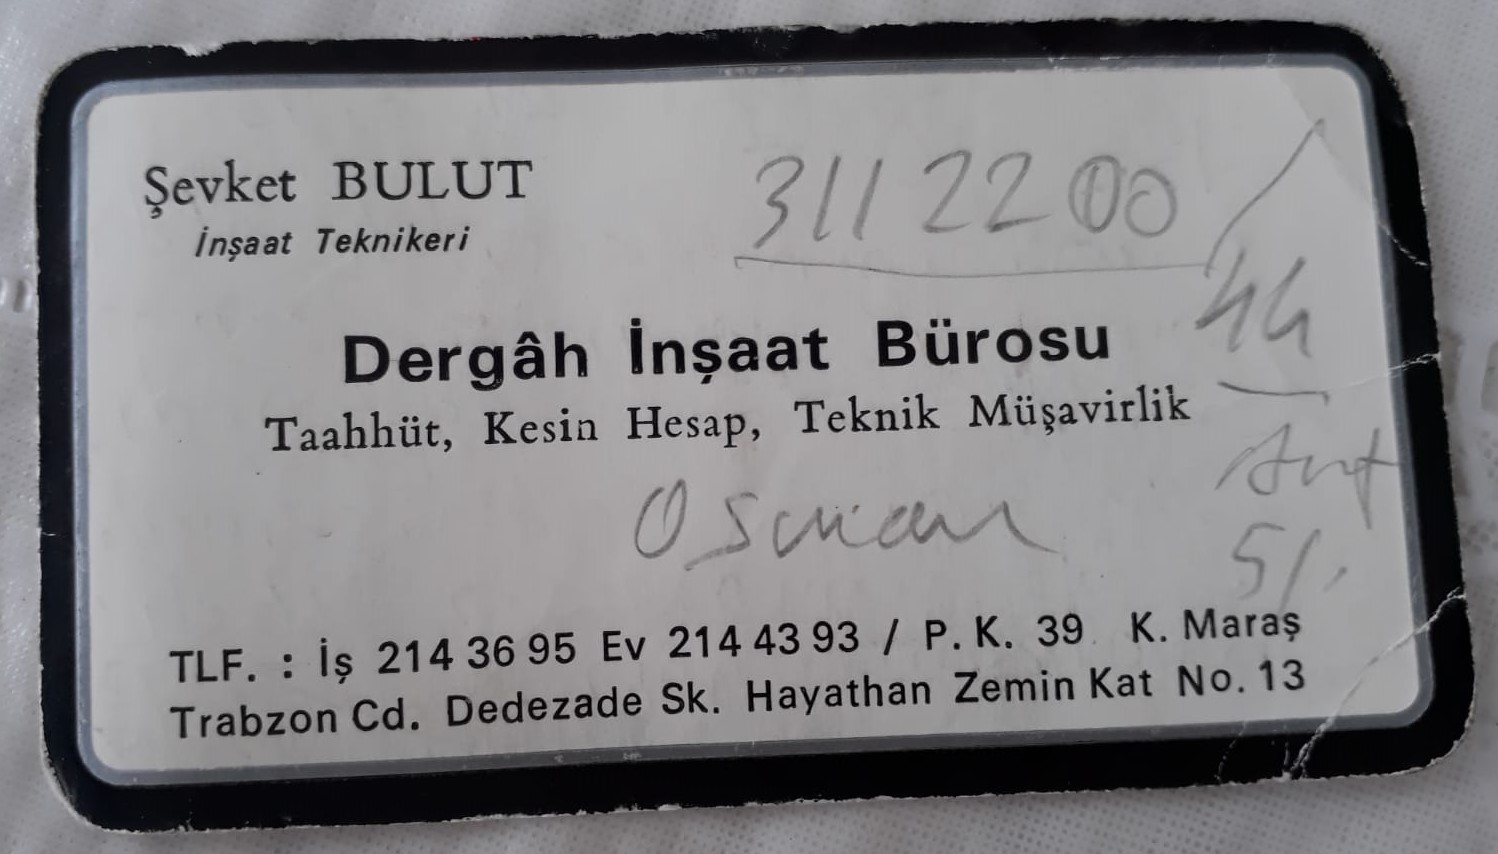 Şevket BULUT
İnşaat Teknikeri
311 22 00
44
Dergâh İnşaat Bürosu
Taahhüt, Kesin Hesap, Teknik Müşavirlik
Osman
TLF. : İş 214 36 95 Ev 214 43 93 / P. K. 39 K. Maraş
Trabzon Cd. Dedezade Sk. Hayathan Zemin Kat No. 13